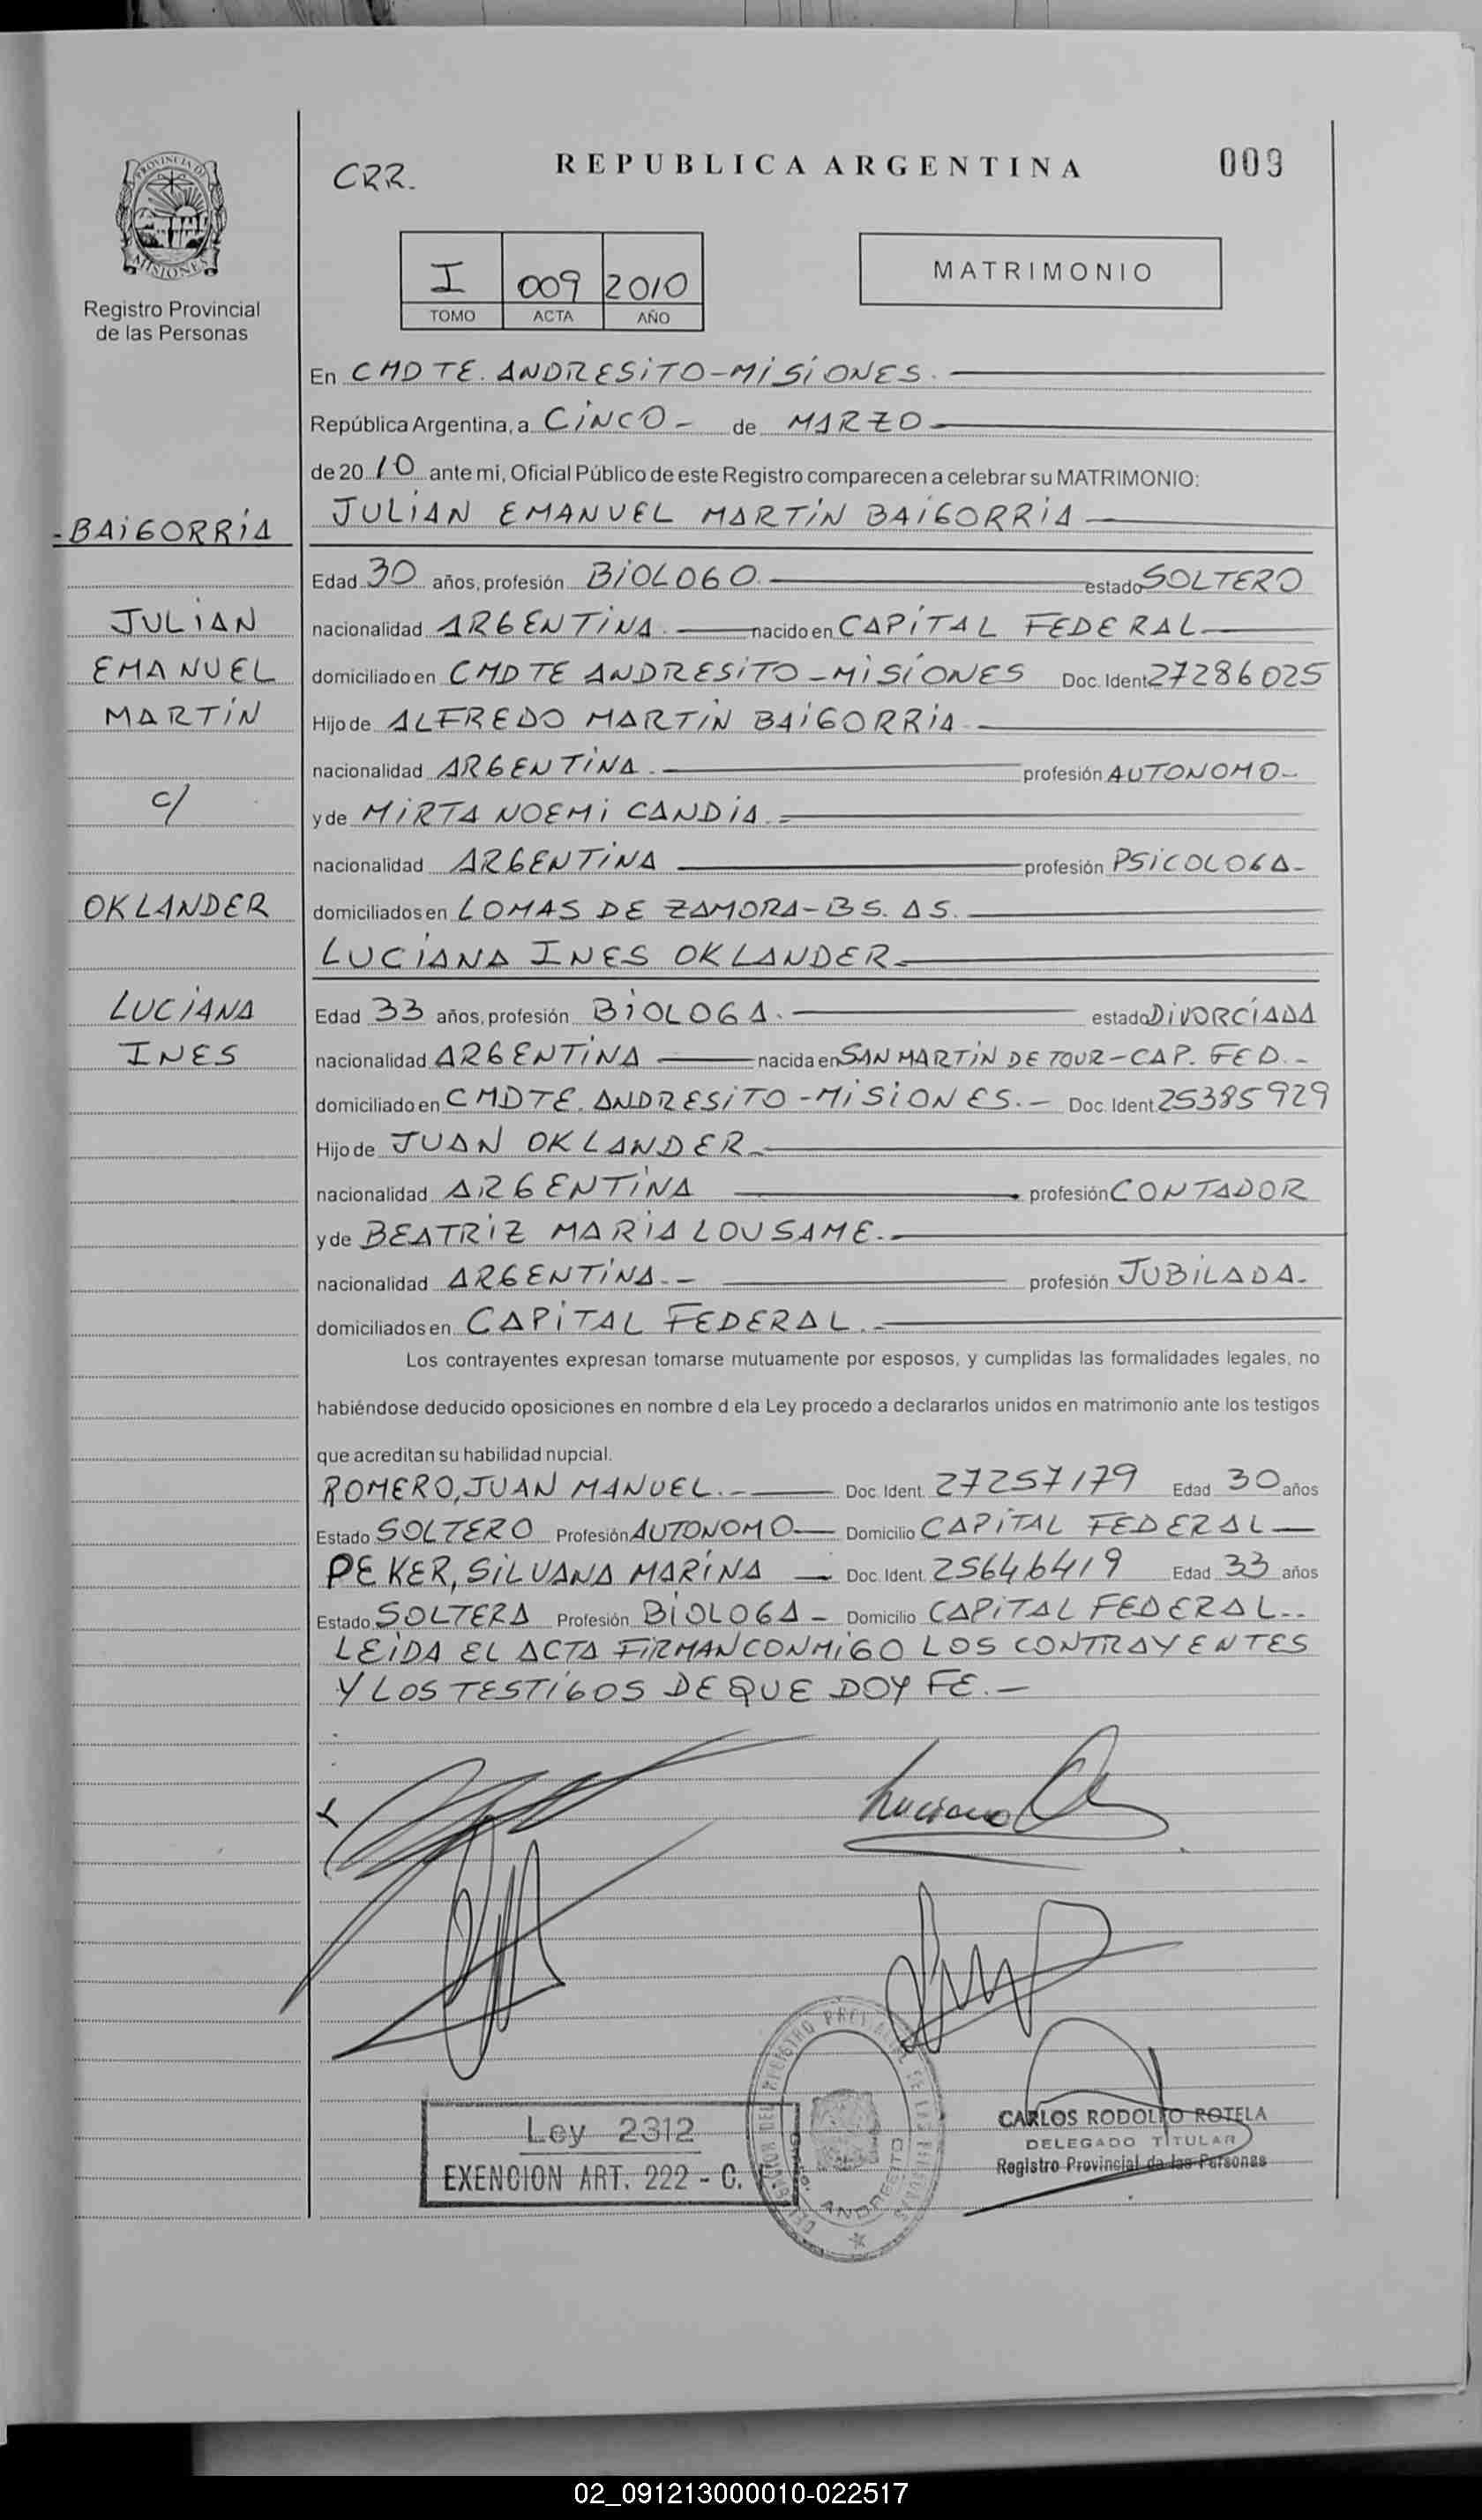 PROVINCIA DE
MISIONES
Registro Provincial
de las Personas
CRR.
REPUBLICA ARGENTINA
009
I 009 2010
TOMO ACTA AÑO
MATRIMONIO
En CMDTE. ANDRESITO-MISIONES.
República Argentina, a CINCO- de MARZO
de 20 10 ante mi, Oficial Público de este Registro comparecen a celebrar su MATRIMONIO:
JULIAN EMANUEL MARTIN BAIGORRIA
-BAIGORRIA
Edad 30 años, profesión BIOLOGO. estado SOLTERO
JULIAN
nacionalidad ARGENTINA. nacido en CAPITAL FEDERAL
EMANUEL
domiciliado en CMDTE ANDRESITO-MISIONES Doc. Ident 27286025
MARTIN
Hijo de ALFREDO MARTIN BAIGORRIA
nacionalidad ARGENTINA. profesión AUTONOMO-
c/
y de MIRTA NOEMI CANDIA.-
nacionalidad ARGENTINA profesión PSICOLOGA-
OKLANDER
domiciliados en LOMAS DE ZAMORA-BS. AS.
LUCIANA INES OKLANDER-
LUCIANA
Edad 33 años, profesión BIOLOGA. estado DIVORCIADA
INES
nacionalidad ARGENTINA nacida en SAN MARTIN DE TOUR-CAP. FED.-
domiciliado en CMDTE. ANDRESITO-MISIONES.- Doc. Ident 25385929
Hijo de JUAN OKLANDER-
nacionalidad ARGENTINA profesión CONTADOR
y de BEATRIZ MARIA LOUSAME.-
nacionalidad ARGENTINA.- profesión JUBILADA-
domiciliados en CAPITAL FEDERAL.-
Los contrayentes expresan tomarse mutuamente por esposos, y cumplidas las formalidades legales, no
habiéndose deducido oposiciones en nombre d ela Ley procedo a declararlos unidos en matrimonio ante los testigos
que acreditan su habilidad nupcial.
ROMERO, JUAN MANUEL.- Doc. Ident. 27257179 Edad 30 años
Estado SOLTERO Profesión AUTONOMO- Domicilio CAPITAL FEDERAL-
PEKER, SILVANA MARINA - Doc. Ident. 25646419 Edad 33 años
Estado SOLTERA Profesión BIOLOGA- Domicilio CAPITAL FEDERAL.-
LEIDA EL ACTA FIRMAN CONMIGO LOS CONTRAYENTES
Y LOS TESTIGOS DE QUE DOY FE.-
Luciana
Ley 2312
EXENCION ART. 222 - C.
ANDRESITO
CARLOS RODOLFO ROTELA
DELEGADO TITULAR
Registro Provincial de las Personas
02_091213000010-022517